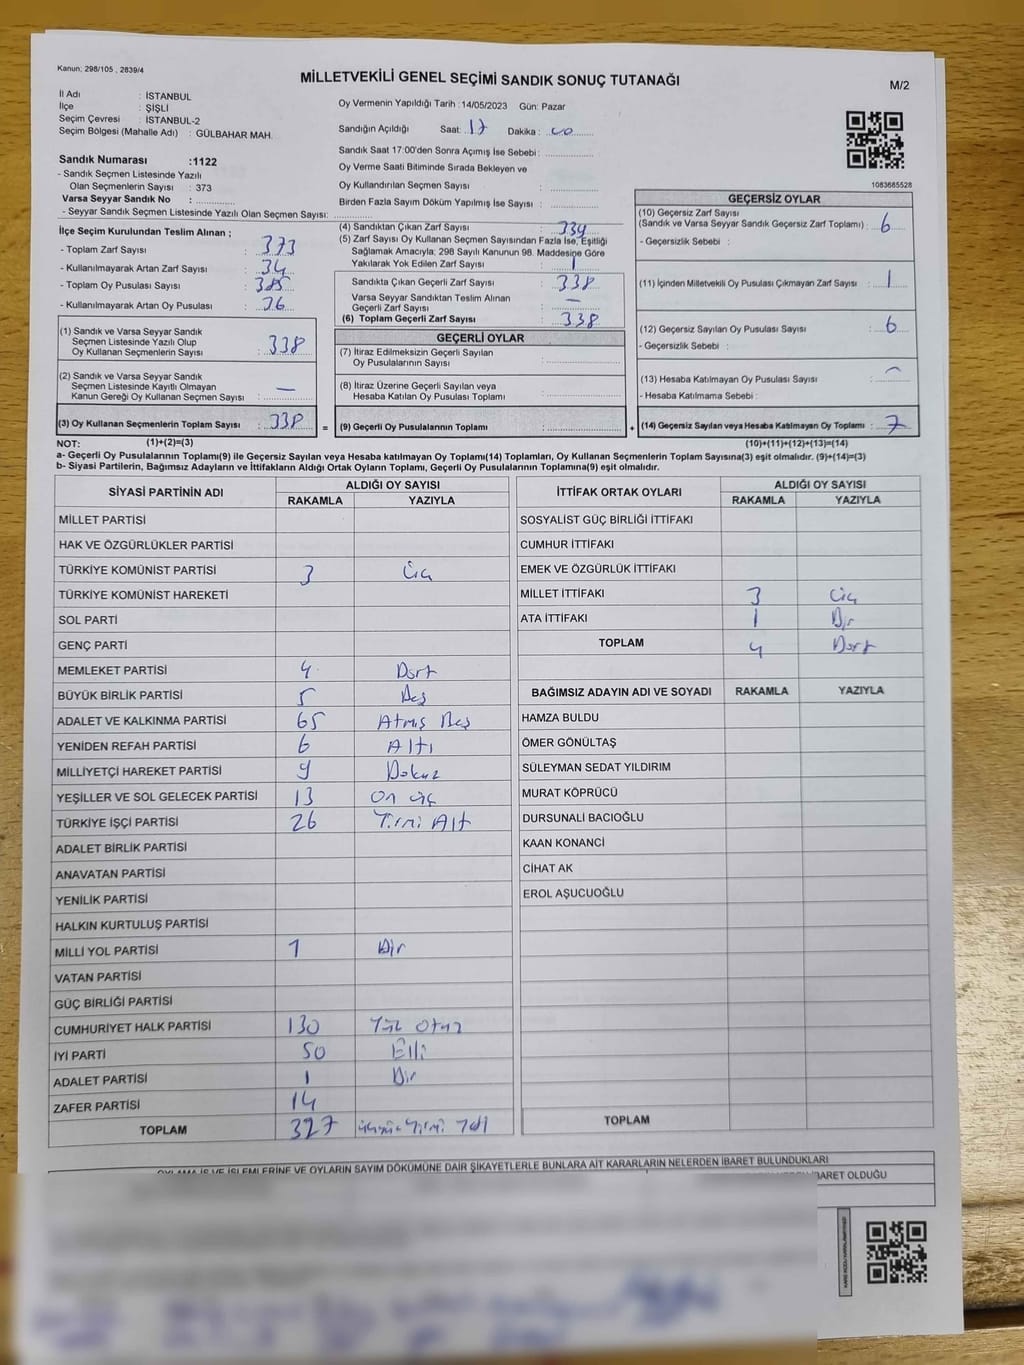 Kanun; 298/105 , 2839/4
MİLLETVEKİLİ GENEL SEÇİMİ SANDIK SONUÇ TUTANAĞI
M/2
İl Adı : İSTANBUL
İlçe : ŞİŞLİ
Seçim Çevresi : İSTANBUL-2
Seçim Bölgesi (Mahalle Adı) : GÜLBAHAR MAH.
Sandık Numarası :1122
- Sandık Seçmen Listesinde Yazılı
Olan Seçmenlerin Sayısı : 373
Varsa Seyyar Sandık No :
- Seyyar Sandık Seçmen Listesinde Yazılı Olan Seçmen Sayısı:
Oy Vermenin Yapıldığı Tarih : 14/05/2023 Gün: Pazar
Sandığın Açıldığı Saat: 17 Dakika : 00
Sandık Saat 17:00'den Sonra Açımış İse Sebebi :
Oy Verme Saati Bitiminde Sırada Bekleyen ve
Oy Kullandırılan Seçmen Sayısı :
Birden Fazla Sayım Döküm Yapılmış İse Sayısı :
1083685528
İlçe Seçim Kurulundan Teslim Alınan ;
- Toplam Zarf Sayısı : 373
- Kullanılmayarak Artan Zarf Sayısı : 34
- Toplam Oy Pusulası Sayısı : 385
- Kullanılmayarak Artan Oy Pusulası : 26
(1) Sandık ve Varsa Seyyar Sandık
Seçmen Listesinde Yazılı Olup
Oy Kullanan Seçmenlerin Sayısı : 338
(2) Sandık ve Varsa Seyyar Sandık
Seçmen Listesinde Kayıtlı Olmayan
Kanun Gereği Oy Kullanan Seçmen Sayısı : —
(3) Oy Kullanan Seçmenlerin Toplam Sayısı : 338 =
(4) Sandıktan Çıkan Zarf Sayısı : 339
(5) Zarf Sayısı Oy Kullanan Seçmen Sayısından Fazla İse, Eşitliği
Sağlamak Amacıyla; 298 Sayılı Kanunun 98. Maddesine Göre
Yakılarak Yok Edilen Zarf Sayısı : 1
Sandıkta Çıkan Geçerli Zarf Sayısı : 338
Varsa Seyyar Sandıktan Teslim Alınan
Geçerli Zarf Sayısı : —
(6) Toplam Geçerli Zarf Sayısı : 338
GEÇERLİ OYLAR
(7) İtiraz Edilmeksizin Geçerli Sayılan
Oy Pusulalarının Sayısı :
(8) İtiraz Üzerine Geçerli Sayılan veya
Hesaba Katılan Oy Pusulası Toplamı :
(9) Geçerli Oy Pusulalarının Toplamı : +
GEÇERSİZ OYLAR
(10) Geçersiz Zarf Sayısı
(Sandık ve Varsa Seyyar Sandık Geçersiz Zarf Toplamı) : 6
- Geçersizlik Sebebi :
(11) İçinden Milletvekili Oy Pusulası Çıkmayan Zarf Sayısı : 1
(12) Geçersiz Sayılan Oy Pusulası Sayısı : 6
- Geçersizlik Sebebi :
(13) Hesaba Katılmayan Oy Pusulası Sayısı :
- Hesaba Katılmama Sebebi :
(14) Geçersiz Sayılan veya Hesaba Katılmayan Oy Toplamı : 7
NOT: (1)+(2)=(3) (10)+(11)+(12)+(13)=(14)
a- Geçerli Oy Pusulalarının Toplamı(9) ile Geçersiz Sayılan veya Hesaba katılmayan Oy Toplamı(14) Toplamları, Oy Kullanan Seçmenlerin Toplam Sayısına(3) eşit olmalıdır. (9)+(14)=(3)
b- Siyasi Partilerin, Bağımsız Adayların ve İttifakların Aldığı Ortak Oyların Toplamı, Geçerli Oy Pusulalarının Toplamına(9) eşit olmalıdır.
SİYASİ PARTİNİN ADI ALDIĞI OY SAYISI
RAKAMLA YAZIYLA
MİLLET PARTİSİ
HAK VE ÖZGÜRLÜKLER PARTİSİ
TÜRKİYE KOMÜNİST PARTİSİ 3 Üç
TÜRKİYE KOMÜNİST HAREKETİ
SOL PARTİ
GENÇ PARTİ
MEMLEKET PARTİSİ 4 Dört
BÜYÜK BİRLİK PARTİSİ 5 Beş
ADALET VE KALKINMA PARTİSİ 65 Atmış Beş
YENİDEN REFAH PARTİSİ 6 Altı
MİLLİYETÇİ HAREKET PARTİSİ 9 Dokuz
YEŞİLLER VE SOL GELECEK PARTİSİ 13 On üç
TÜRKİYE İŞÇİ PARTİSİ 26 Yirmi Altı
ADALET BİRLİK PARTİSİ
ANAVATAN PARTİSİ
YENİLİK PARTİSİ
HALKIN KURTULUŞ PARTİSİ
MİLLİ YOL PARTİSİ 1 Bir
VATAN PARTİSİ
GÜÇ BİRLİĞİ PARTİSİ
CUMHURİYET HALK PARTİSİ 130 Yüz Otuz
İYİ PARTİ 50 Elli
ADALET PARTİSİ 1 Bir
ZAFER PARTİSİ 14
TOPLAM 327 üçyüz Yirmi Yedi
İTTİFAK ORTAK OYLARI ALDIĞI OY SAYISI
RAKAMLA YAZIYLA
SOSYALİST GÜÇ BİRLİĞİ İTTİFAKI
CUMHUR İTTİFAKI
EMEK VE ÖZGÜRLÜK İTTİFAKI
MİLLET İTTİFAKI 3 Üç
ATA İTTİFAKI 1 Bir
TOPLAM 4 Dört
BAĞIMSIZ ADAYIN ADI VE SOYADI RAKAMLA YAZIYLA
HAMZA BULDU
ÖMER GÖNÜLTAŞ
SÜLEYMAN SEDAT YILDIRIM
MURAT KÖPRÜCÜ
DURSUNALİ BACIOĞLU
KAAN KONANCİ
CİHAT AK
EROL AŞUCUOĞLU
TOPLAM
OYLAMA İŞ VE İŞLEMLERİNE VE OYLARIN SAYIM DÖKÜMÜNE DAİR ŞİKAYETLERLE BUNLARA AİT KARARLARIN NELERDEN İBARET BULUNDUKLARI
İBARET OLDUĞU